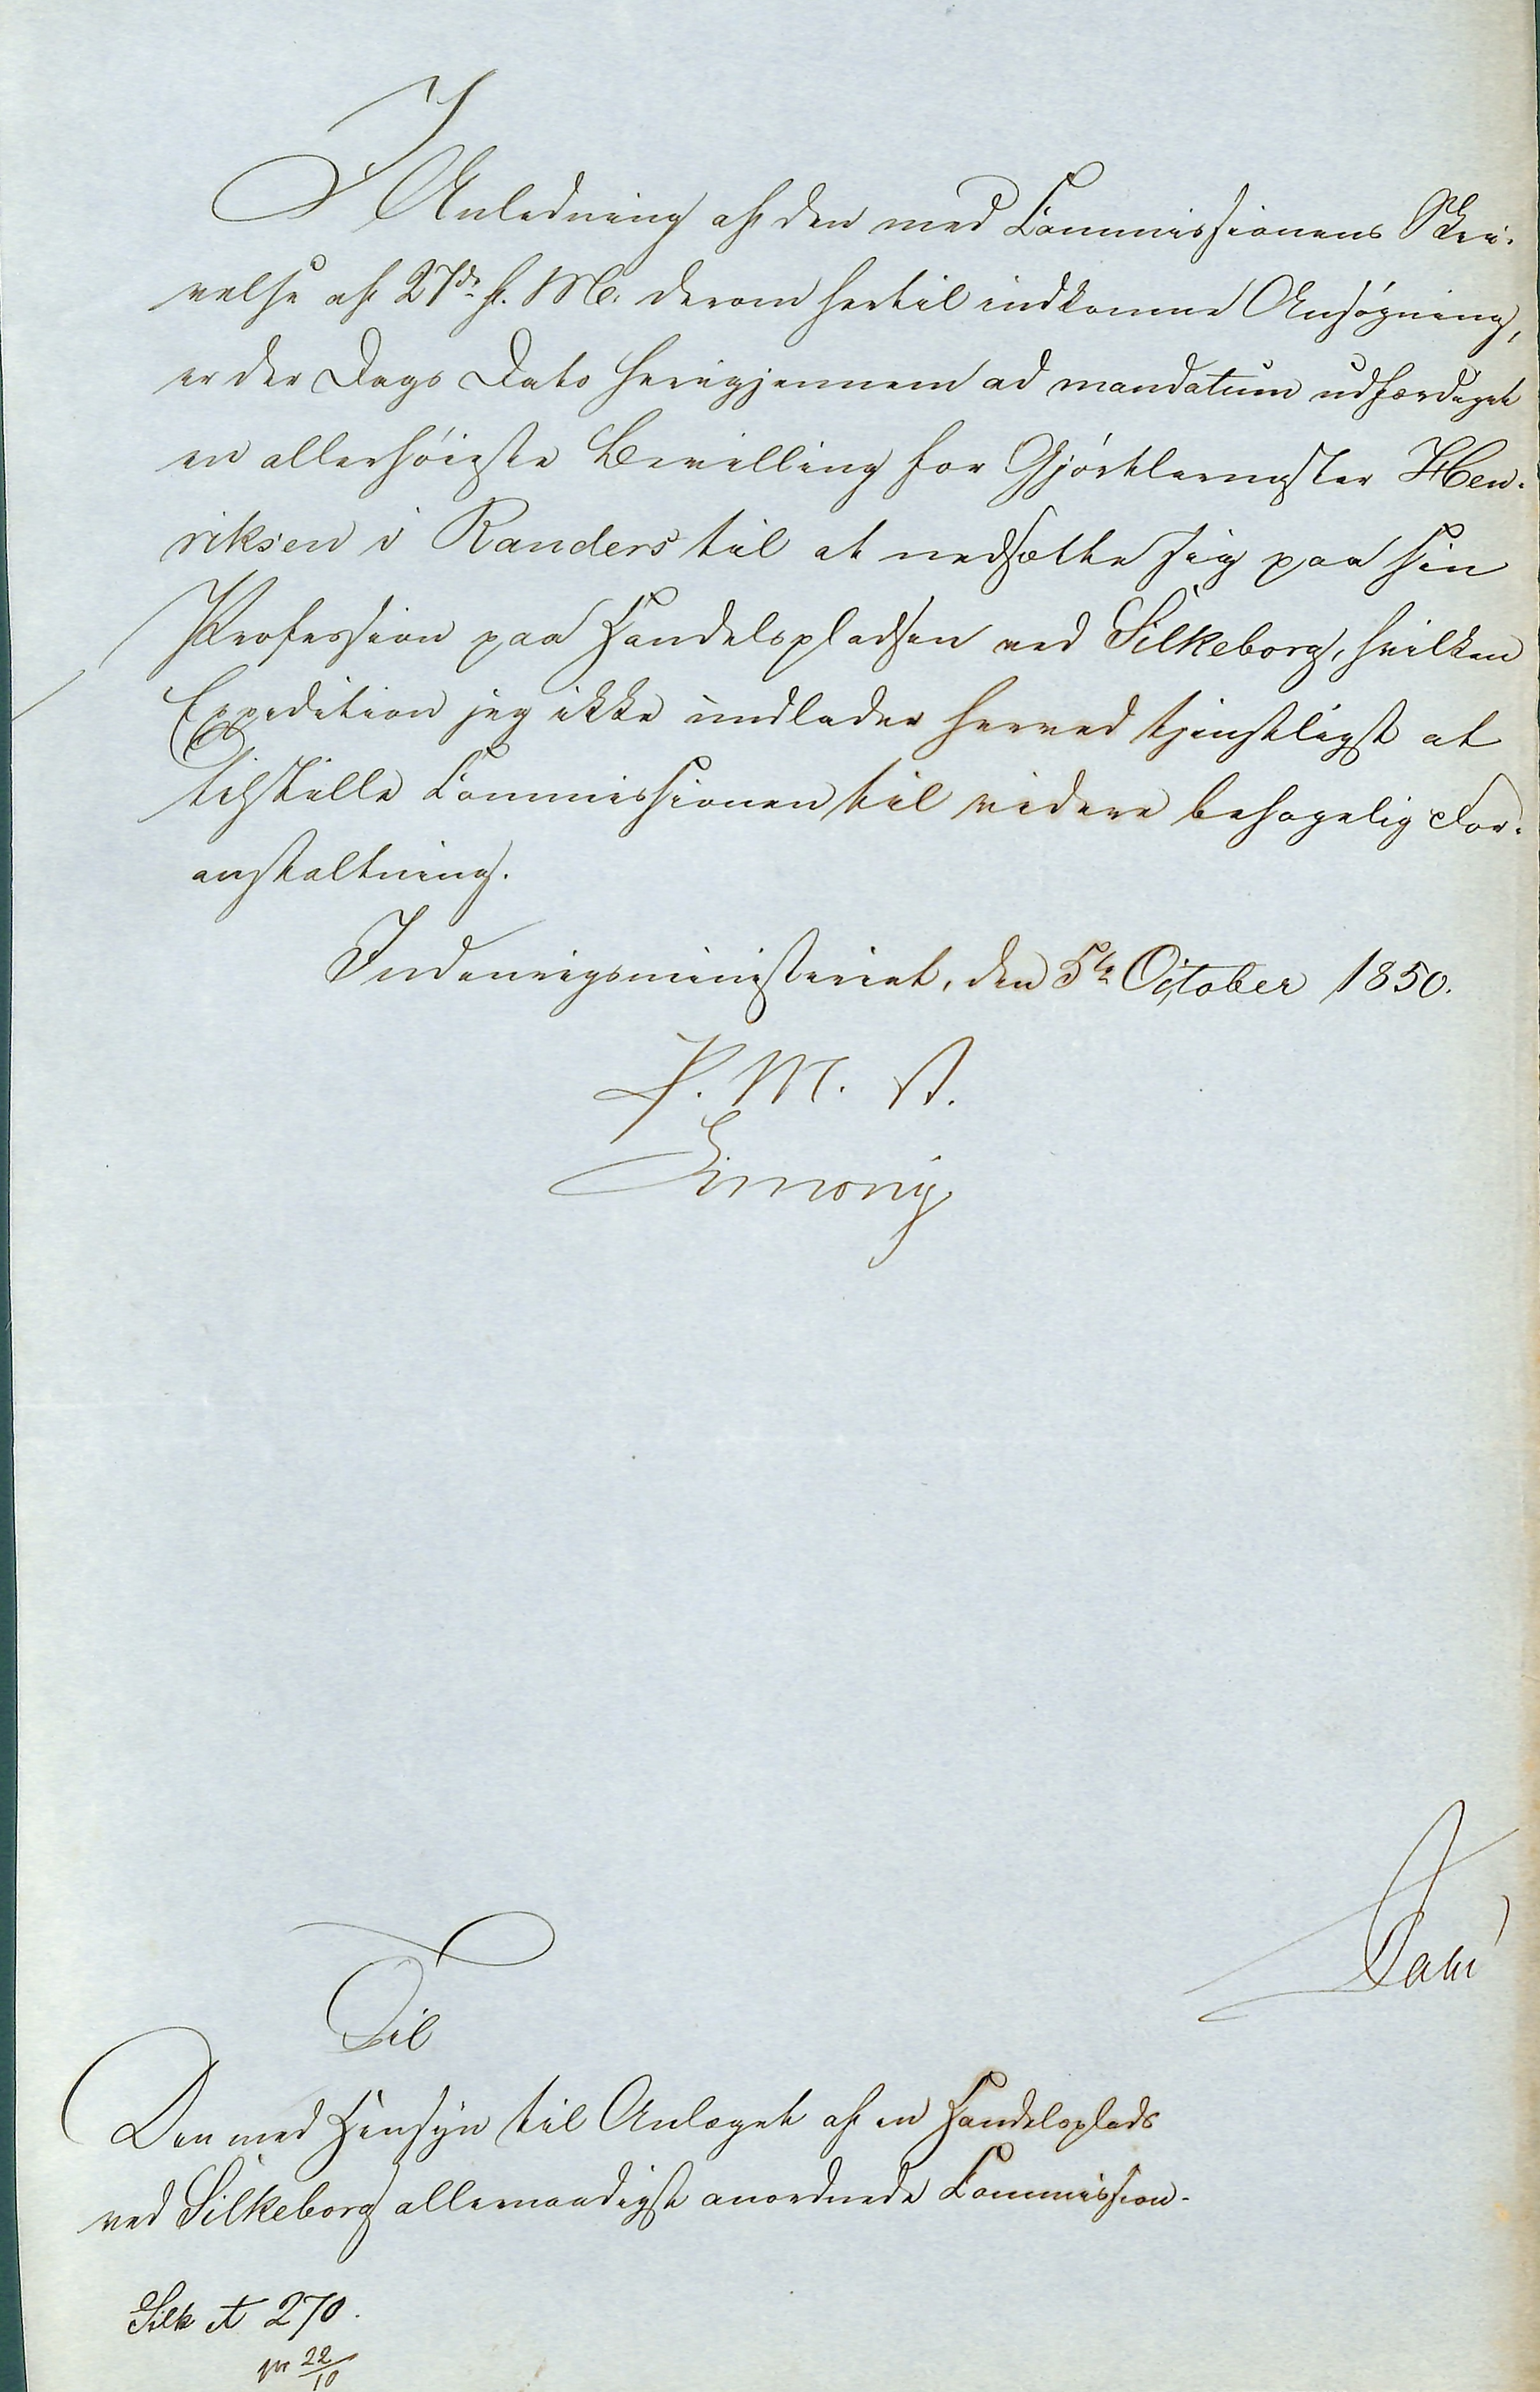 I
Anledning af den med Commissionens Skri-
velse af 27de f. M. derom hertil indkomne Ansøgning,
er der Dags Dato herigjennem ad mandatum udfærdiget
en allerhøieste Bevilling for Gjørtlermester Hen-
riksen i Randers til at nedsætte sig paa sin
Profession paa Handelspladsen ved Silkeborg, hvilken
Expedition jeg ikke undlader herved tjenstligst at
tilstille Commissionen til videre behagelig For-
anstaltning.
Indenrigsministeriet, den 5te October 1850.
P. M. V.
Simony
Til
Den med Hensyn til Anlæget af en Handelsplads
ved Silkeborg allernaadigst anordnede Commission.
Silk A 270.
pr 22/10